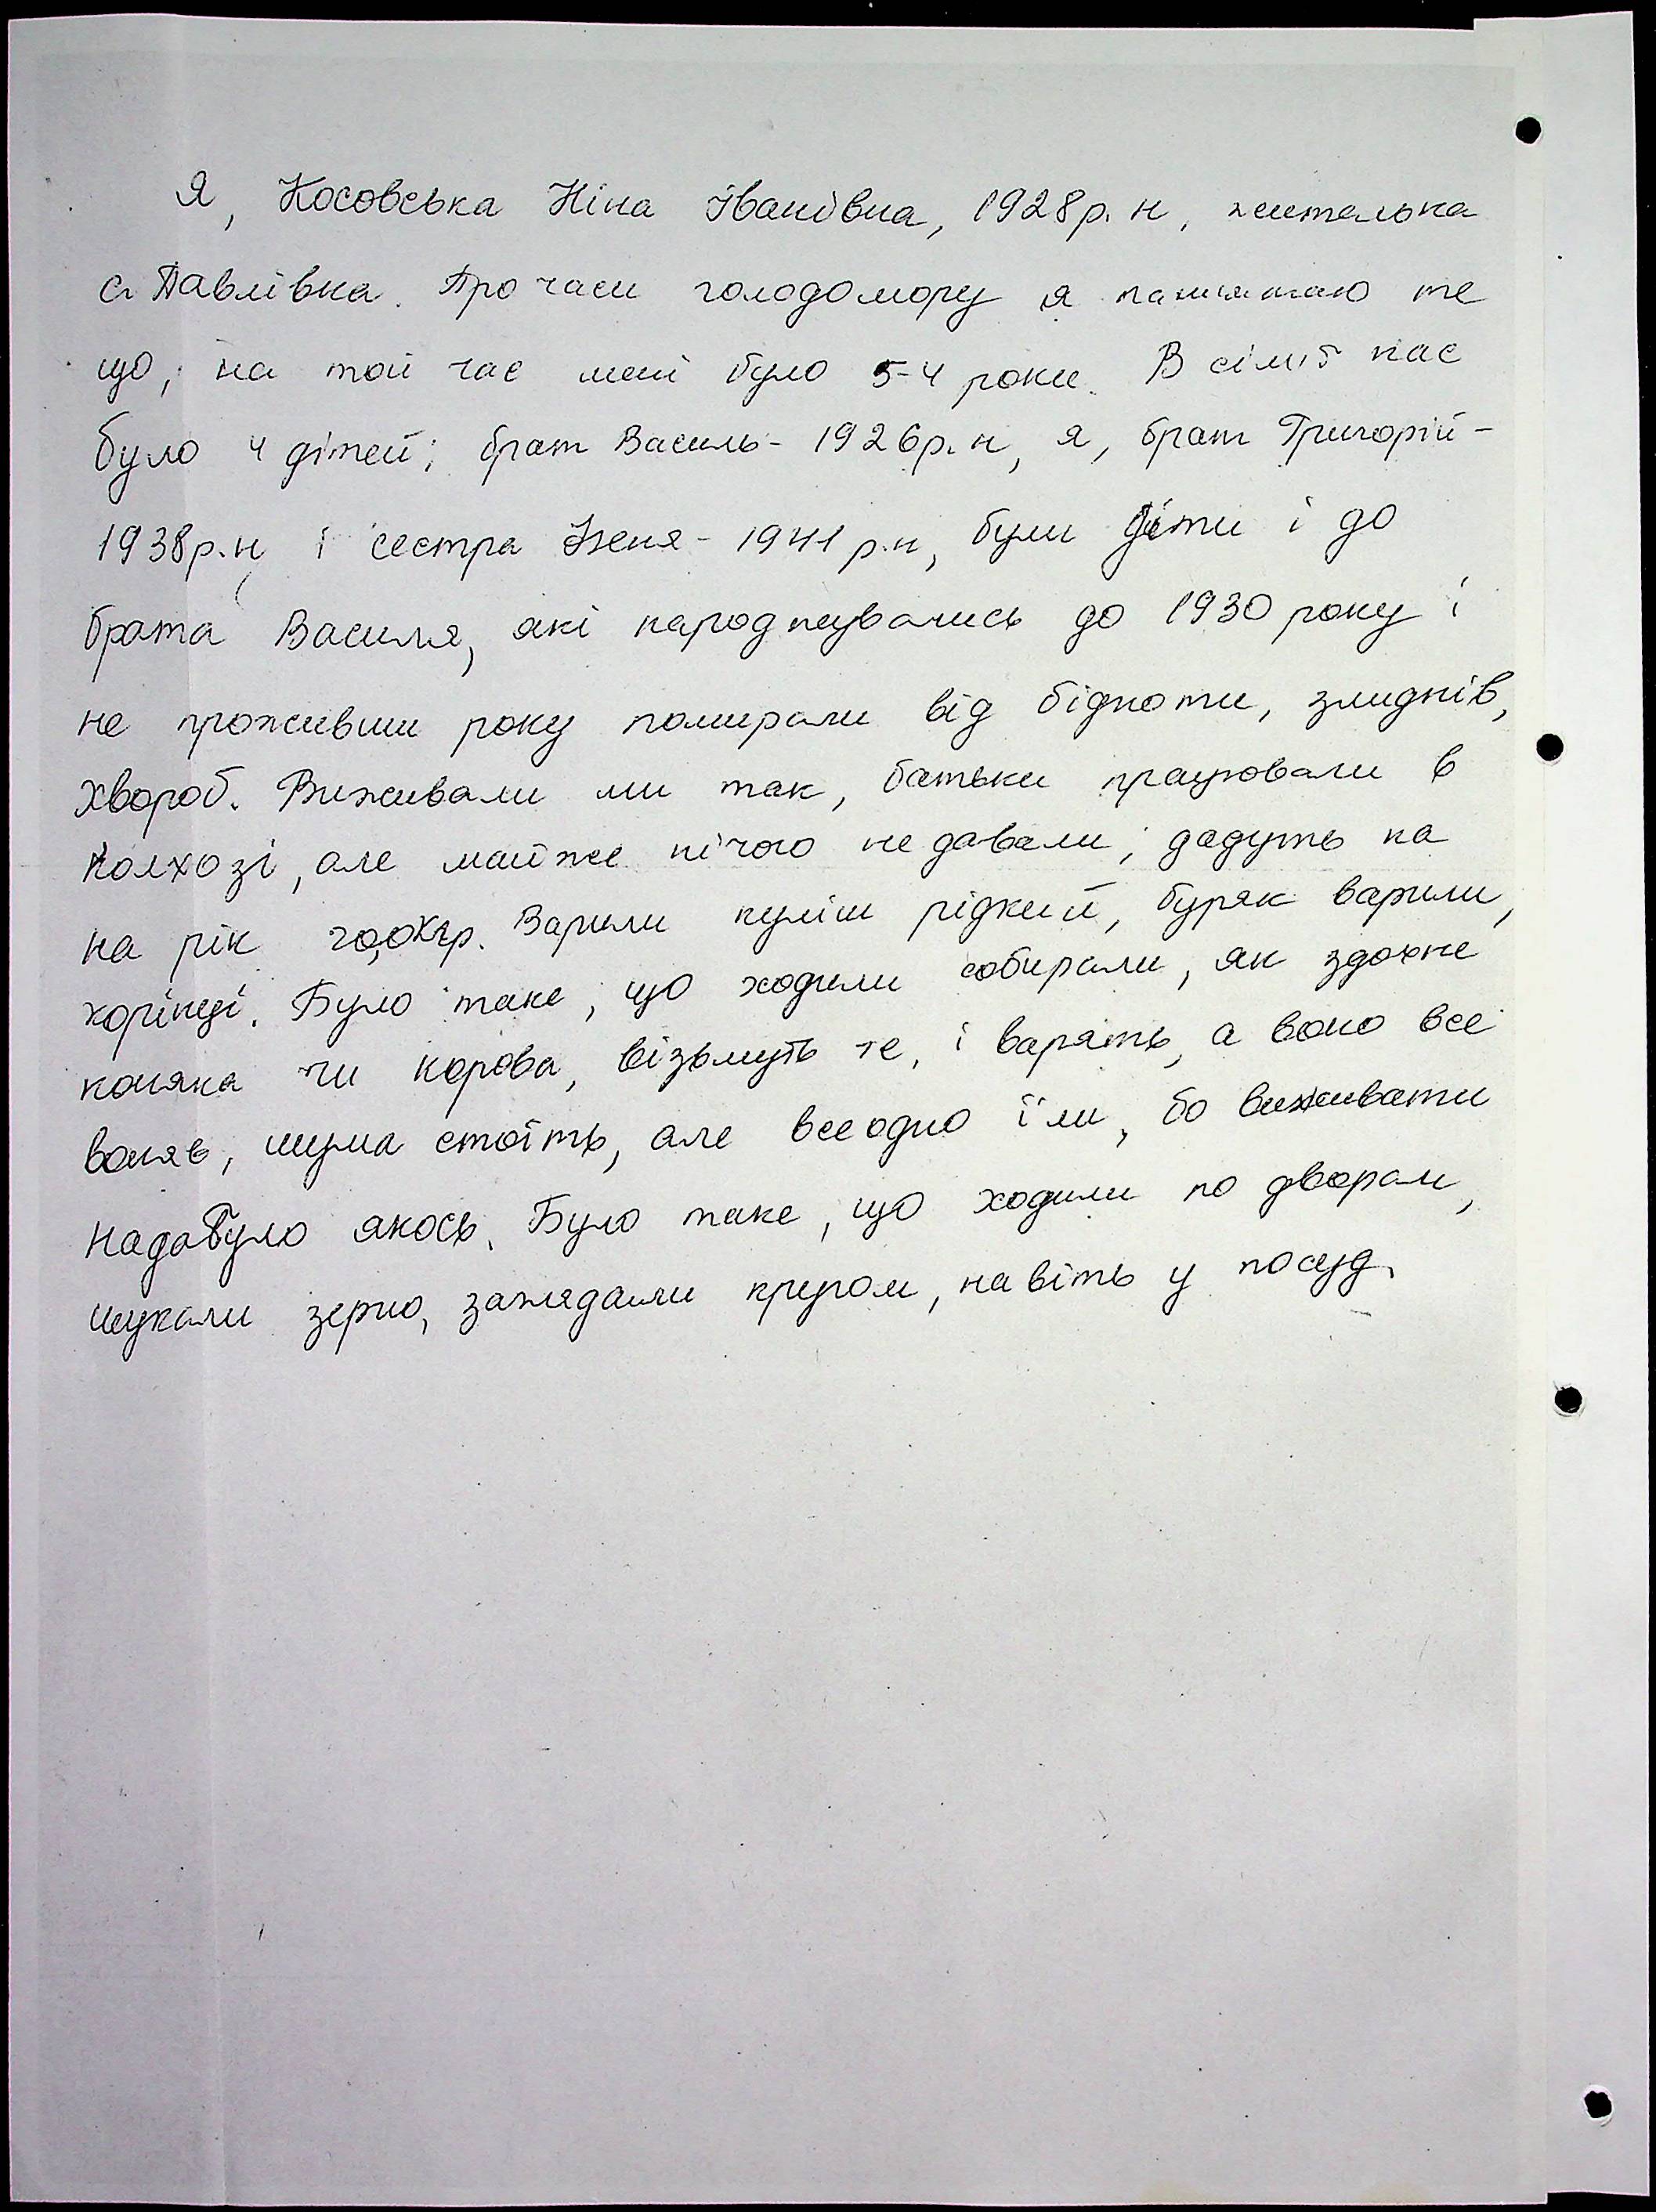 Я, Косовська Ніна Іванівна, 1928р.н, жителька
с. Павлівка. Про часи голодомору я памʼятаю те
що, на той час мені було 5-4 роки. В сімʼї нас
було 4 дітей; брат Василь - 1926р.н, я, брат Григорій -
1938р.н, і сестра Женя - 1941 р.н, були діти і до
брата Василя, які народжувались до 1930 року і
не проживши року помирали від бідноти, злиднів,
хвороб. Виживали ми так, батьки працювали в
колхозі, але майже нічого не давали, дадуть на
на рік кгр. Варили куліш рідкий, буряк варили,
корінці. Було таке, що ходили собирали, як здохне
коняка чи корова, візьмуть те, і варять, а воно все
воняє, шума стоїть, але всеодно їли, бо виживати
надобуло якось. Було таке, що ходили по дворам,
шукали зерно, заглядали кругом, навіть у посуд.